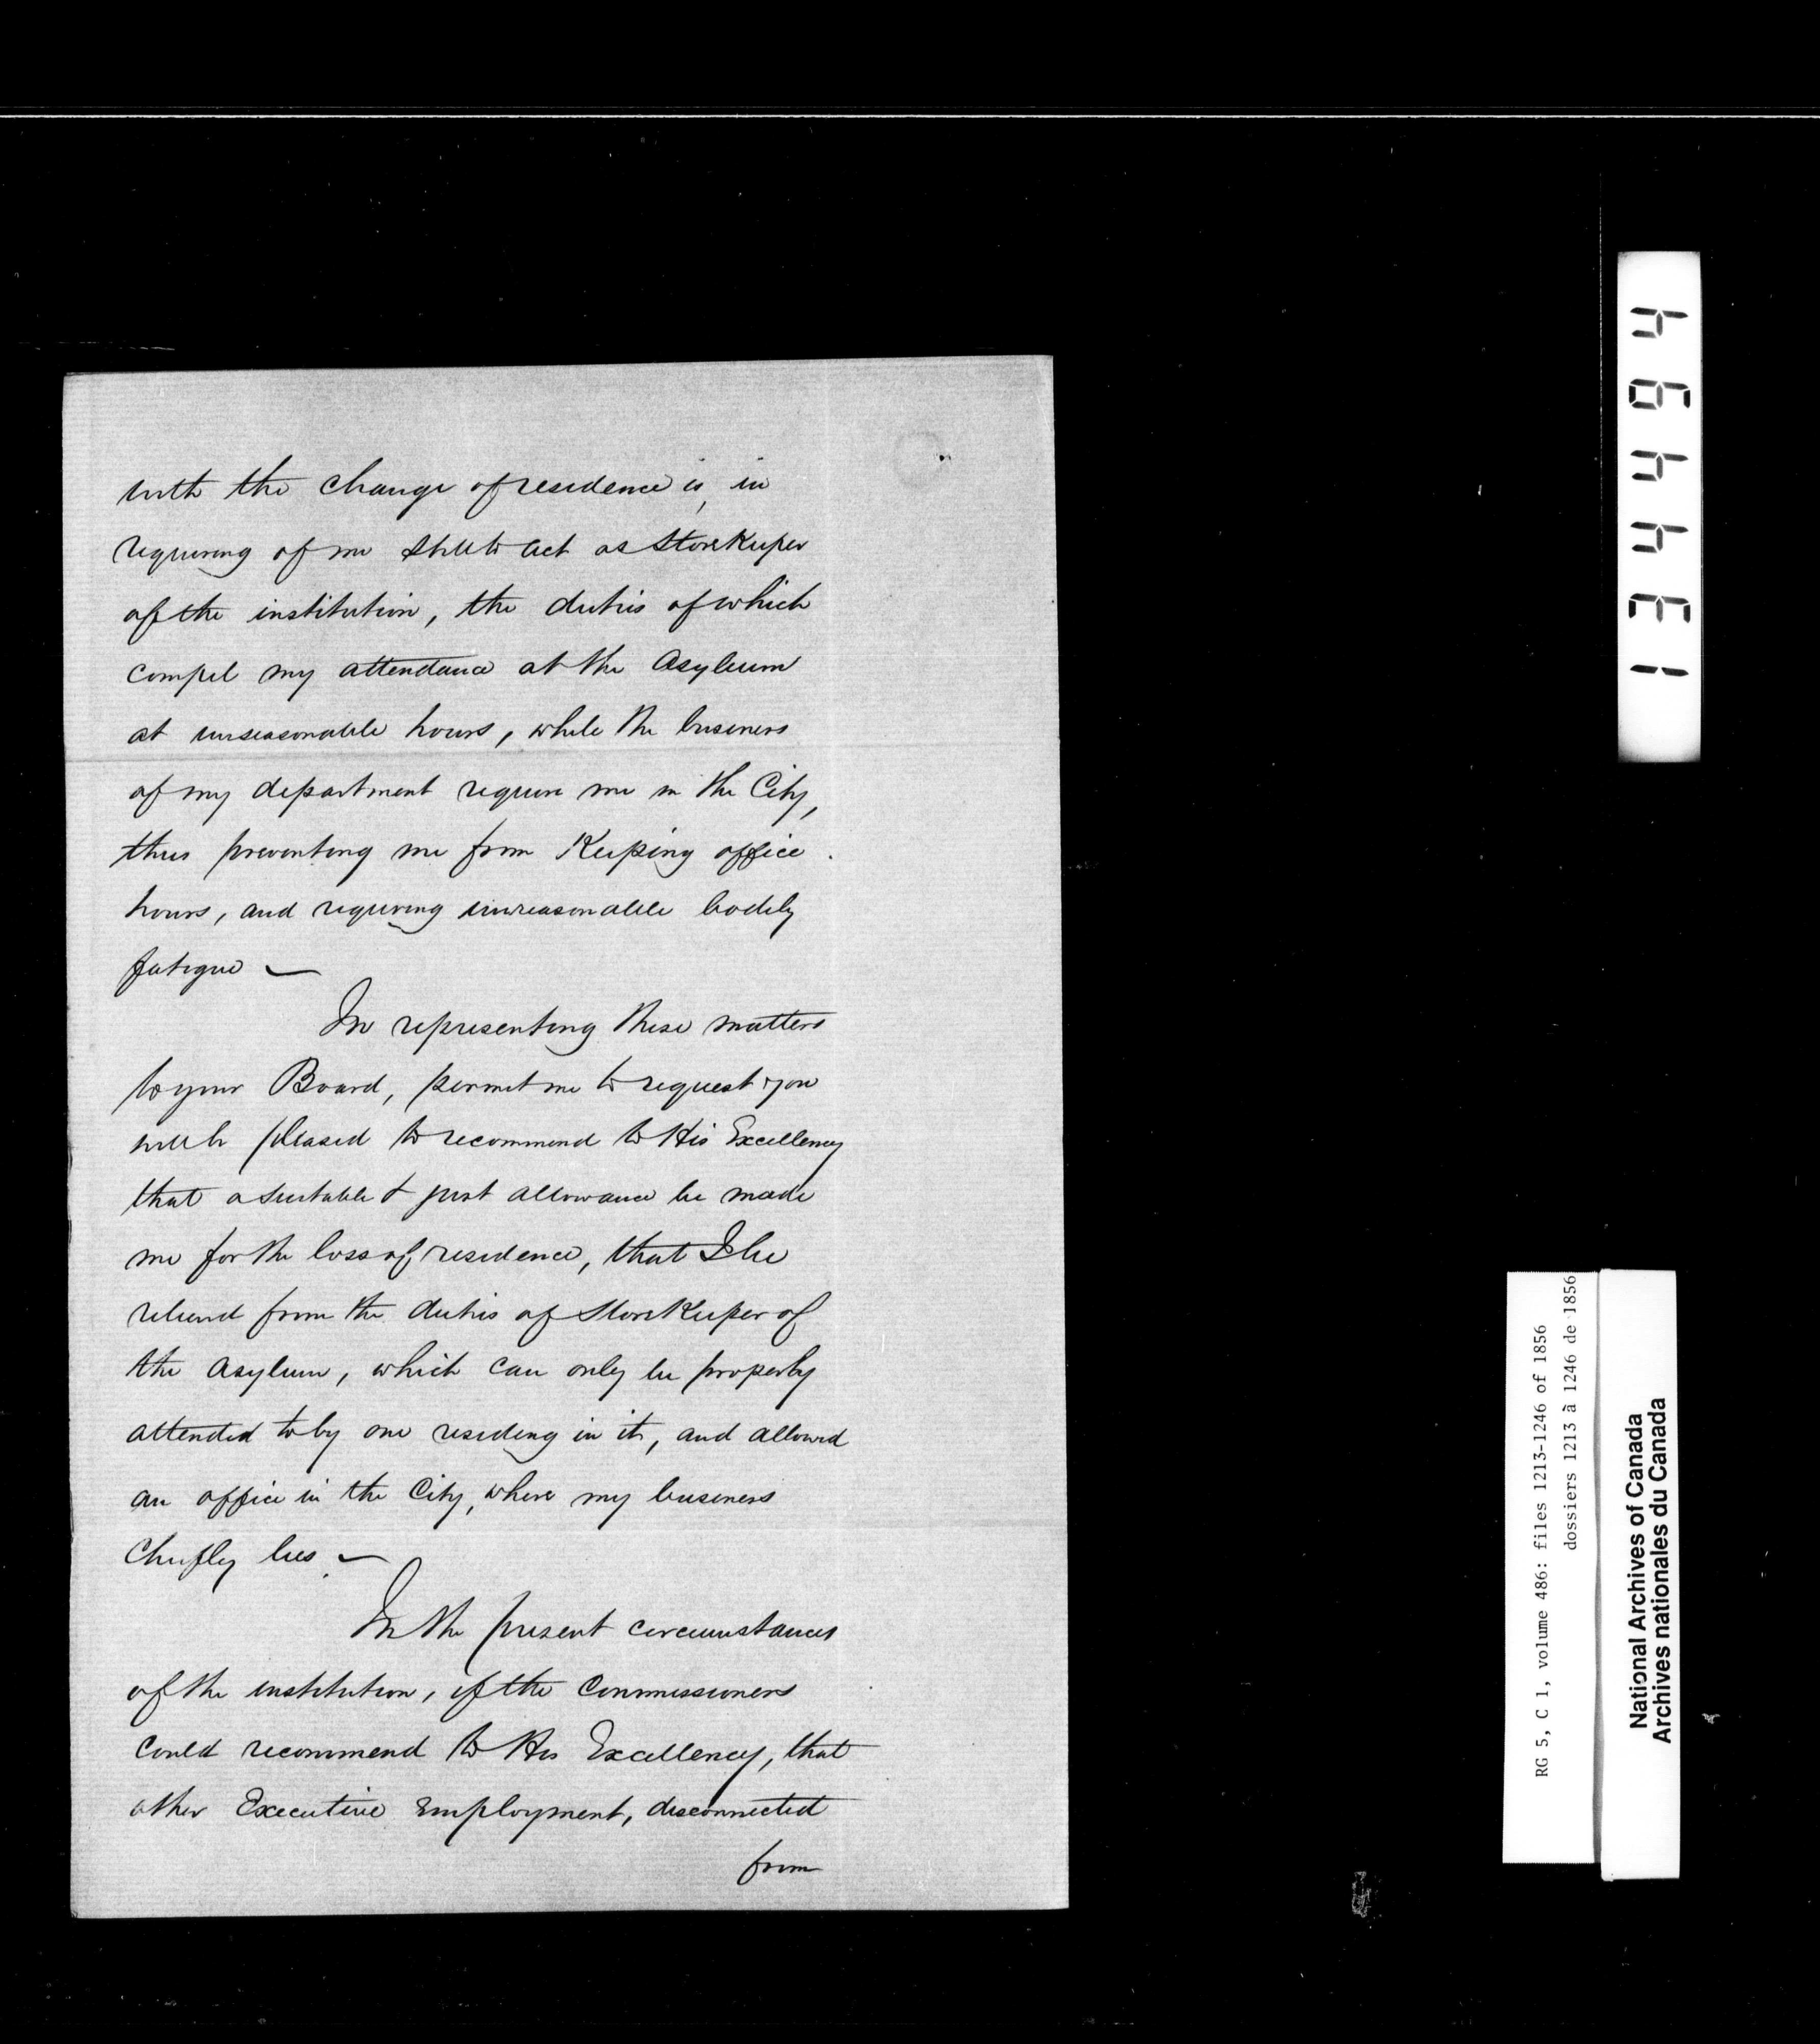 with the change of residence is, in
requiring of me still to act as Storekeeper
of the institution, the duties of which
compel my attendance at the Asylum
at unseasonable hours, while the business
of my department require me in the City,
thus preventing me from Keeping office
hours, and requiring unreasonable bodily
fatigue —
In representing these matters
to your Board, permit me to request you
will be pleased to recommend to His Excellency
that a suitable & just allowance be made
me for the loss of residence, that I be
relieved from the duties of Storekeeper of
the Asylum, which can only be properly
attended to by one residing in it, and allowed
an office in the City, where my business
Chiefly lies —
In the present circumstances
of the institution, if the Commissioners
could recommend to His Excellency, that
other Executive Employment, disconnected
from
134464
RG 5, C 1, volume 486: files 1213-1246 of 1856
dossiers 1213 à 1246 de 1856
National Archives of Canada
Archives nationales du Canada